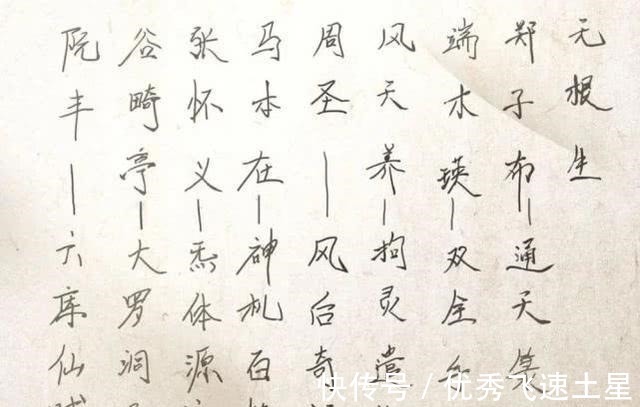 无根生
郑子布—通天箓
端木瑛—双全
风天养—拘灵遣
周圣—风后奇
马本在—神机百
张怀义—炁体源
谷畸亭—大罗洞
阮丰—六库仙贼
快传号/优秀飞速土星